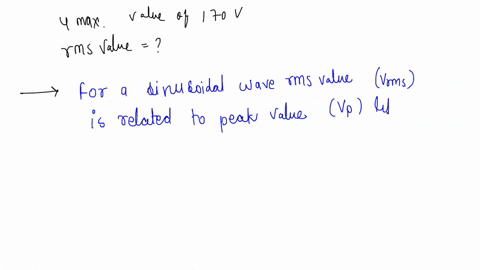 max. value of 170 V
rms value = ?
→ for a sinusoidal wave rms value (Vrms)
is related to peak value (Vp)